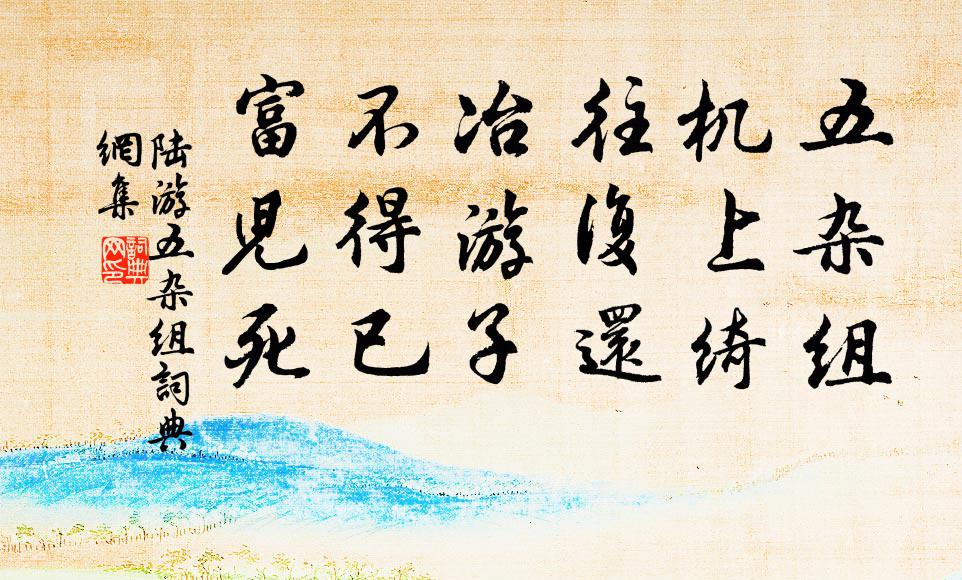 五杂组
机上绮
往復還
冶游子
不得已
富児死
陆游五杂组詞典
網集
詞典
网印